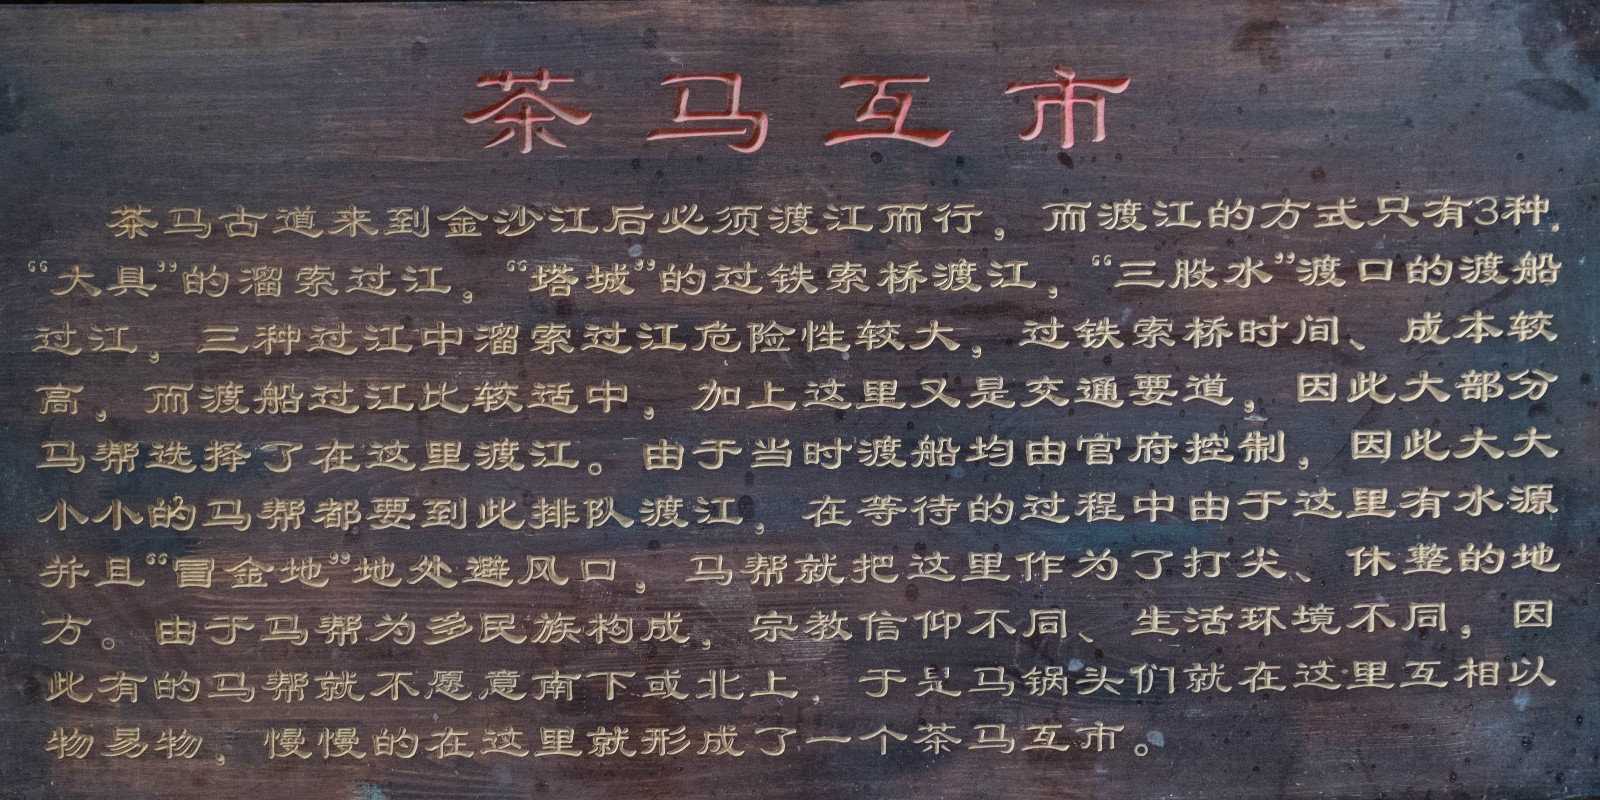 茶马互市
茶马古道来到金沙江后必须渡江而行，而渡江的方式只有3种，
“大具”的溜索过江，“塔城”的过铁索桥渡江，“三股水”渡口的渡船
过江，三种过江中溜索过江危险性较大，过铁索桥时间、成本较
高，而渡船过江比较适中，加上这里又是交通要道，因此大部分
马帮选择了在这里渡江。由于当时渡船均由官府控制，因此大大
小小的马帮都要到此排队渡江，在等待的过程中由于这里有水源
并且“冒金地”地处避风口，马帮就把这里作为了打尖、休整的地
方。由于马帮为多民族构成，宗教信仰不同、生活环境不同，因
此有的马帮就不愿意南下或北上，于是马锅头们就在这里互相以
物易物，慢慢的在这里就形成了一个茶马互市。